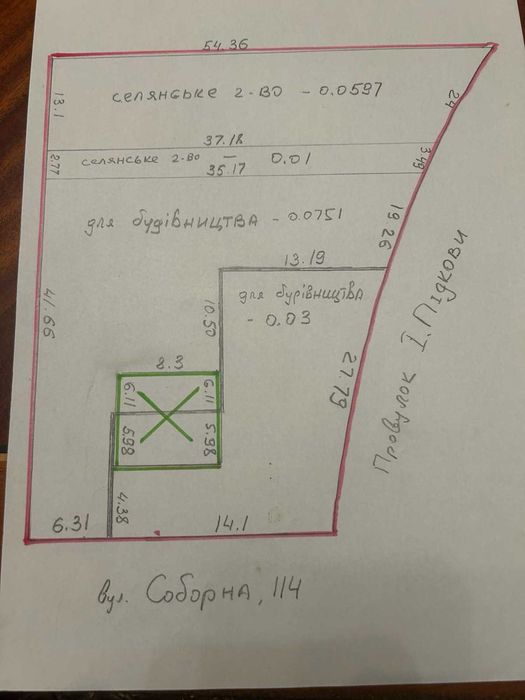 54.36
13.1
селянське г-во - 0.0597
24
37.18
2.77
селянське г-во - 0.01
3.49
35.17
для будівництва - 0.0751
19.26
13.19
41.66
10.50
для бурівництва
- 0.03
8.3
27.79
6.11
6.11
5.98
5.98
4.38
6.31
14.1
Провулок І. Підкови
вул. Соборна, 114